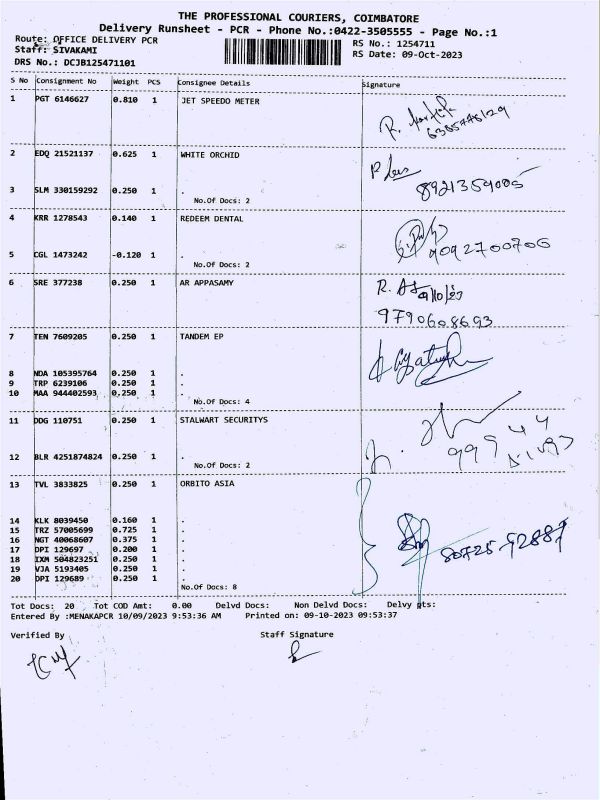 THE PROFESSIONAL COURIERS, COIMBATORE
Delivery Runsheet - PCR - Phone No.:0422-3505555 - Page No.:1
Route: OFFICE DELIVERY PCR
RS No.: 1254711
Staff: SIVAKAMI
RS Date: 09-Oct-2023
DRS No.: DCJB125471101
S No Consignment No Weight PCS Consignee Details Signature
1 PGT 6146627 0.810 1 JET SPEEDO METER
R.
2 EDQ 21521137 0.625 1 WHITE ORCHID
3 SLM 330159292 0.250 1 .
8921359005
No.Of Docs: 2
4 KRR 1278543 0.140 1 REDEEM DENTAL
9092700706
5 CGL 1473242 -0.120 1 .
No.Of Docs: 2
6 SRE 377238 0.250 1 AR APPASAMY
R.
9790608693
7 TEN 7609205 0.250 1 TANDEM EP
8 NDA 105395764 0.250 1 .
9 TRP 6239106 0.250 1 .
10 MAA 944402593 0.250 1 .
No.Of Docs: 4
11 DDG 110751 0.250 1 STALWART SECURITYS
12 BLR 4251874824 0.250 1 .
No.Of Docs: 2
13 TVL 3833825 0.250 1 ORBITO ASIA
14 KLK 8039450 0.160 1 .
15 TRZ 57005699 0.725 1 .
16 NGT 40068607 0.375 1 .
17 DPI 129697 0.200 1 .
80725 92887
18 IXM 504823251 0.250 1 .
19 VJA 5193405 0.250 1 .
20 DPI 129689 0.250 1 .
No.Of Docs: 8
Tot Docs: 20 Tot COD Amt: 0.00 Delvd Docs: Non Delvd Docs: Delvy pts:
Entered By :MENAKAPCR 10/09/2023 9:53:36 AM Printed on: 09-10-2023 09:53:37
Verified By Staff Signature